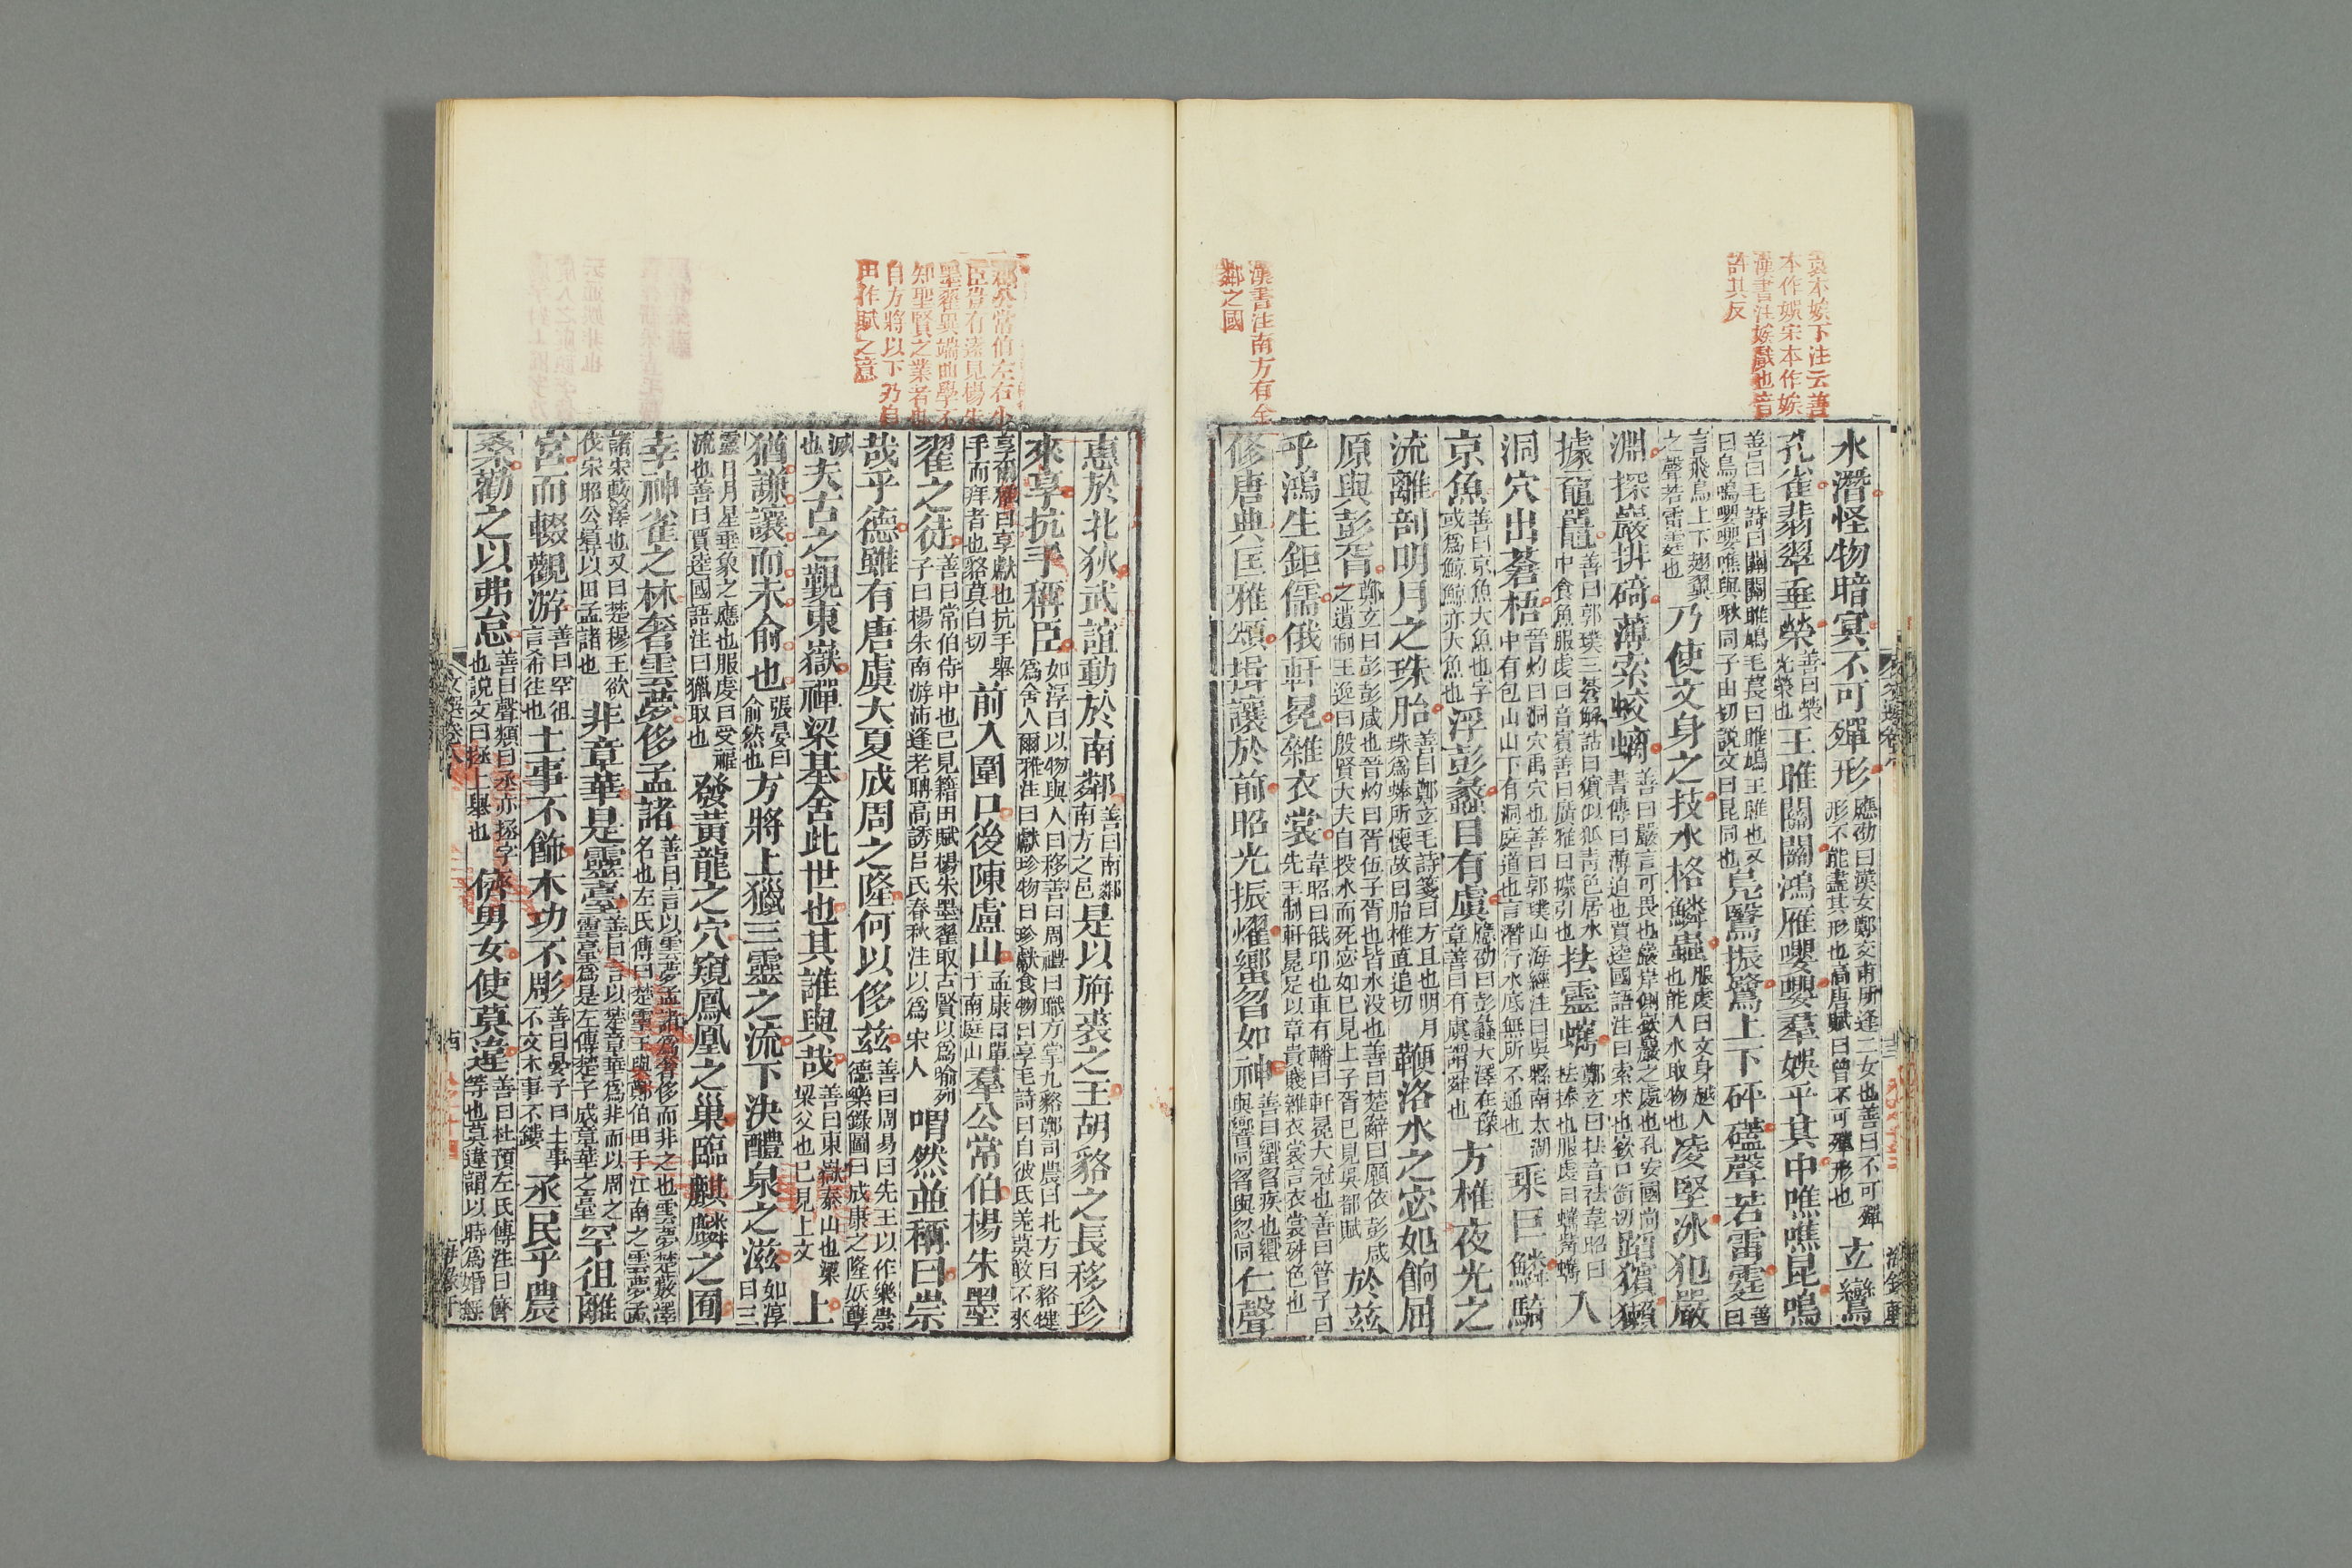 袁本娭下注云善
本作娛宋本作娭
漢書注娭戲也音
許其反
漢書注南方有金
鄰之國
水潛怪物暗冥不可殫形應劭曰漢女鄭交甫所逢二女也善曰不可殫
形不能盡其形也高唐賦曰曾不可殫形也玄鸞
孔雀翡翠垂榮善曰榮
光榮也王雎關關鴻雁嚶嚶羣娛乎其中噍噍昆鳴
善曰毛詩曰關關雎鳩毛萇曰雎鳩王雎也又
曰鳥鳴嚶嚶噍與啾同子由切說文曰昆同也鳧鷖振鷺上下砰磕聲若雷霆善
曰
言飛鳥上下翅翼
之聲若雷霆也乃使文身之技水格鱗蟲服虔曰文身越人
也能入水取物也凌堅冰犯嚴
淵探巖排碕薄索蛟螭善曰嚴言可畏也巖岸側嶔巖之處也孔安國尚
書傳曰薄迫也賈逵國語注曰索求也嶔口銜切蹈獱獺
據黿鼉善曰郭璞三蒼解詁曰獱似狐青色居水
中食魚服虔曰音賓善曰廣雅曰據引也抾靈蠵鄭玄曰抾音祛韋昭曰
抾捧也服虔曰蠵觜蠵入
洞穴出蒼梧晉灼曰洞穴禹穴也善曰郭璞山海經注曰吳縣南太湖
中有包山山下有洞庭道也言潛行水底無所不通也乘巨鱗騎
京魚善曰京魚大魚也字
或爲鯨鯨亦大魚也浮彭蠡目有虞應劭曰彭蠡大澤在豫
章善曰有虞謂舜也方椎夜光之
流離剖明月之珠胎善曰鄭玄毛詩箋曰方且也明月
珠爲蜯所懷故曰胎椎直追切鞭洛水之宓妃餉屈
原與彭胥鄭玄曰彭彭咸也晉灼曰胥伍子胥也皆水没也善曰楚辭曰願依彭咸
之遺制王逸曰殷賢大夫自投水而死宓妃已見上子胥已見吳都賦於茲
乎鴻生鉅儒俄軒冕雜衣裳韋昭曰俄卬也車有轓曰軒冕大冠也善曰管子曰
先王制軒冕足以章貴賤雜衣裳言衣裳殊色也
修唐典匡雅頌揖讓於前昭光振燿蠁曶如神善曰蠁曶疾也蠁
與響同曶與忽同仁聲
郊公常伯左右少
臣豈有遠見楊朱
墨翟異端曲學不
知聖賢之業者也
自方將以下乃自
田作賦之意
惠於北狄武誼動於南鄰善曰南鄰
南方之邑是以旃裘之王胡貉之長移珍
來享抗手稱臣如淳曰以物與人曰移善曰周禮曰職方掌九貉鄭司農曰北方曰貉犍
爲舍人爾雅注曰獻珍物曰珍獻食物曰享毛詩曰自彼氐羌莫敢不來
享爾雅曰享獻也抗手舉
手而拜者也貉莫白切前入圍口後陳盧山孟康曰單
于南庭山羣公常伯楊朱墨
翟之徒善曰常伯侍中也已見籍田賦楊朱墨翟取古賢以爲喻列
子曰楊朱南游沛逢老聃高誘呂氏春秋注以爲宋人喟然並稱曰崇
哉乎德雖有唐虞大夏成周之隆何以侈茲善曰周易曰先王以作樂崇
德樂錄圖曰成康之隆妖孽
滅
也夫古之覲東嶽禪梁基舍此世也其誰與哉善曰東嶽泰山也梁
梁父也已見上文上
猶謙讓而未俞也張晏曰
俞然也方將上獵三靈之流下決醴泉之滋如淳
曰三
靈日月星垂象之應也服虔曰受雁
流也善曰賈逵國語注曰獵取也發黃龍之穴窺鳳凰之巢臨麒麟之囿
幸神雀之林奢雲夢侈孟諸善曰言以雲夢孟諸爲奢侈而非之也雲夢楚藪澤
名也左氏傳曰楚靈王與鄭伯田于江南之雲夢孟
諸宋藪澤也又曰楚穆王欲
伐宋昭公導以田孟諸也非章華是靈臺善曰言以楚章華爲非而以周之
靈臺爲是左傳楚子成章華之臺罕徂離
宮而輟觀游善曰罕徂
言希往也土事不飾木功不彫善曰晏子曰土事
不文木事不鏤丞民乎農
桑勸之以弗怠善曰聲類曰丞亦拯字
也說文曰拯上舉也儕男女使莫違善曰杜預左氏傳注曰儕
等也莫違謂以時爲婚無
文選卷八